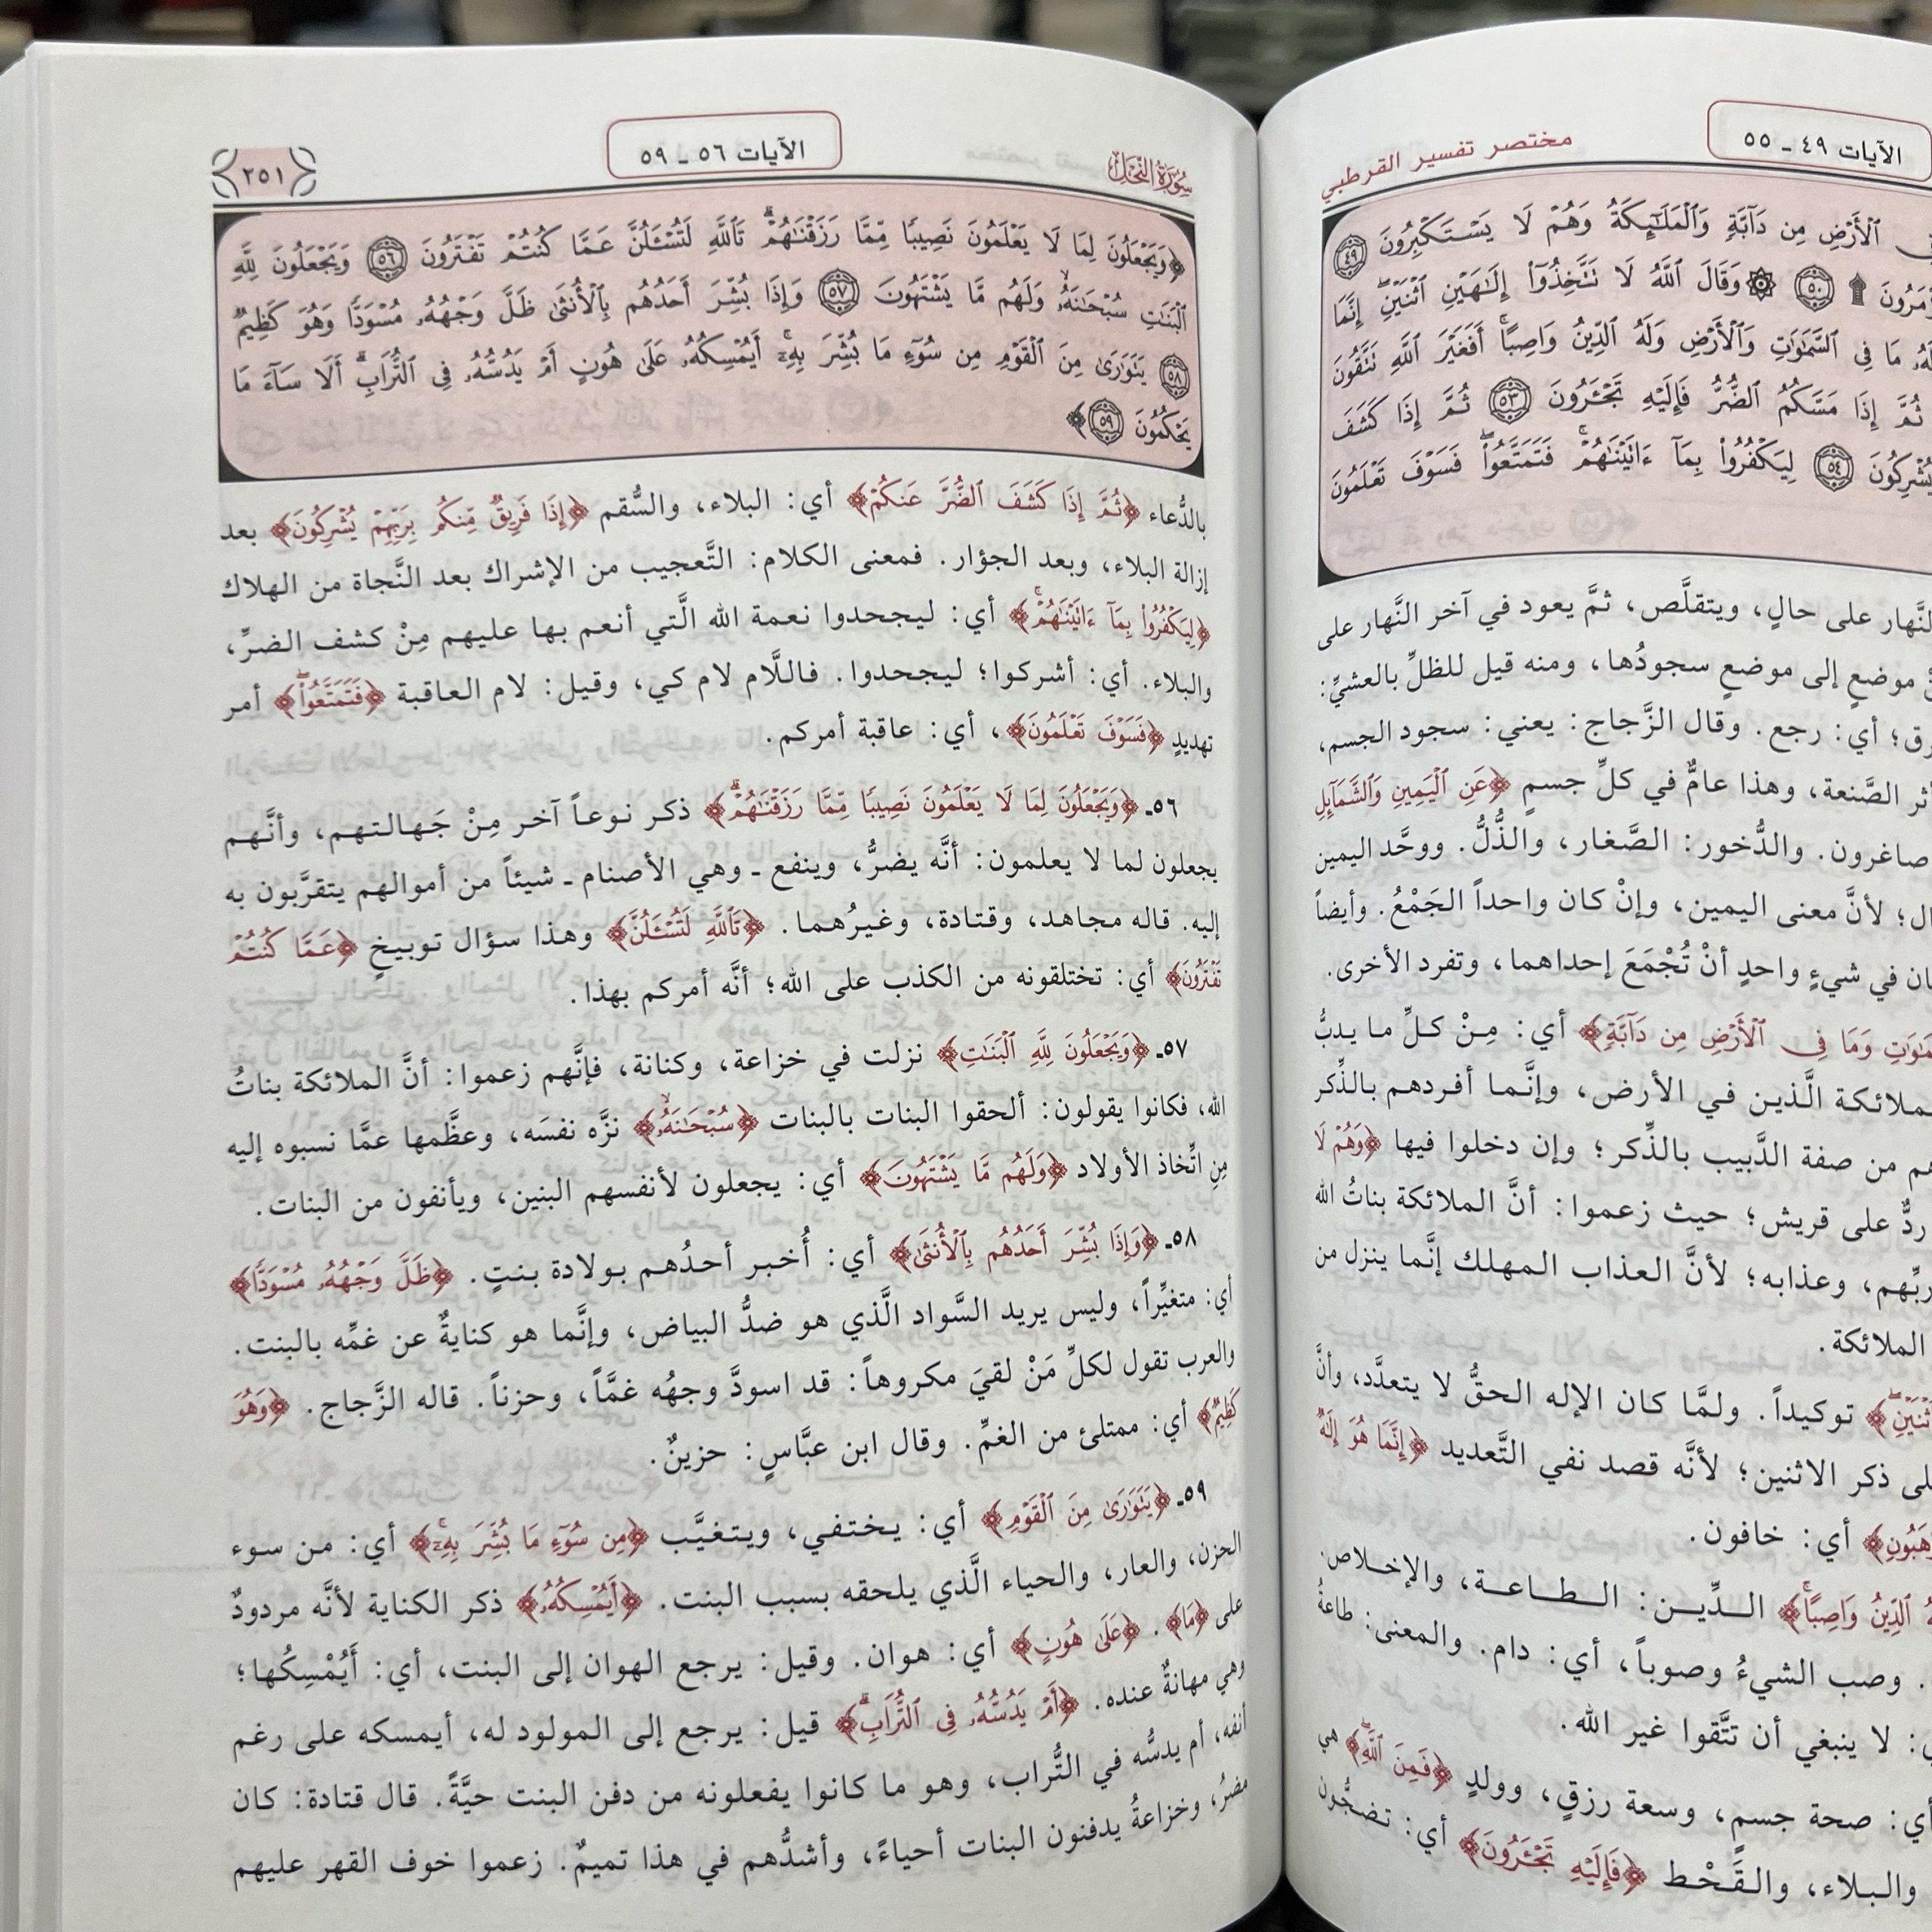 مختصر تفسير القرطبي
الآيات ٤٩ ـ ٥٥
ٱلْأَرْضِ مِن دَآبَّةٍ وَٱلْمَلَٰٓئِكَةُ وَهُمْ لَا يَسْتَكْبِرُونَ ٤٩
٥٠ وَقَالَ ٱللَّهُ لَا تَتَّخِذُوٓا۟ إِلَٰهَيْنِ ٱثْنَيْنِ إِنَّمَا
مَا فِى ٱلسَّمَٰوَٰتِ وَٱلْأَرْضِ وَلَهُ ٱلدِّينُ وَاصِبًا أَفَغَيْرَ ٱللَّهِ تَتَّقُونَ
ثُمَّ إِذَا مَسَّكُمُ ٱلضُّرُّ فَإِلَيْهِ تَجْـَٔرُونَ ٥٣ ثُمَّ إِذَا كَشَفَ
٥٤ لِيَكْفُرُوا۟ بِمَآ ءَاتَيْنَٰهُمْ فَتَمَتَّعُوا۟ فَسَوْفَ تَعْلَمُونَ
النَّهار على حالٍ، ويتقلَّص، ثمَّ يعود في آخر النَّهار على
موضعٍ إلى موضعٍ سجودُها، ومنه قيل للظلِّ بالعشيِّ:
أي: رجع. وقال الزَّجاج: يعني: سجود الجسم،
الصَّنعة، وهذا عامٌّ في كلِّ جسمٍ ﴿عَنِ ٱلْيَمِينِ وَٱلشَّمَآئِلِ
صاغرون. والدُّخور: الصَّغار، والذُّلُّ. ووحَّد اليمين
لأنَّ معنى اليمين، وإنْ كان واحداً الجَمْعُ. وأيضاً
في شيءٍ واحدٍ أنْ تُجْمَعَ إحداهما، وتفرد الأخرى.
وَمَا فِى ٱلْأَرْضِ مِن دَآبَّةٍ﴾ أي: مِنْ كلِّ ما يدبُّ
الَّذين في الأرض، وإنَّما أفردهم بالذِّكر
من صفة الدَّبيب بالذِّكر؛ وإن دخلوا فيها ﴿وَهُمْ لَا
ردٌّ على قريش؛ حيث زعموا: أنَّ الملائكة بناتُ الله
وعذابه؛ لأنَّ العذاب المهلك إنَّما ينزل من
الملائكة.
توكيداً. ولمَّا كان الإله الحقُّ لا يتعدَّد، وأنَّ
ذكر الاثنين؛ لأنَّه قصد نفي التَّعديد ﴿إِنَّمَا هُوَ إِلَٰهٌ
أي: خافون.
ٱلدِّينُ وَاصِبًا﴾ الـدِّيـن: الـطـاعـة، والإخـلاص.
وصب الشيءُ وصوباً، أي: دام. والمعنى: طاعةُ
لا ينبغي أن تتَّقوا غير الله.
أي: صحة جسمٍ، وسعة رزقٍ، وولدٍ ﴿فَمِنَ ٱللَّهِ﴾ هي
والبلاء، والقَحْط ﴿فَإِلَيْهِ تَجْـَٔرُونَ﴾ أي: تضجُّون
سُورَةُ النَّحْلِ
الآيات ٥٦ ـ ٥٩
٢٥١
﴿وَيَجْعَلُونَ لِمَا لَا يَعْلَمُونَ نَصِيبًا مِّمَّا رَزَقْنَٰهُمْ تَٱللَّهِ لَتُسْـَٔلُنَّ عَمَّا كُنتُمْ تَفْتَرُونَ ٥٦ وَيَجْعَلُونَ لِلَّهِ
ٱلْبَنَٰتِ سُبْحَٰنَهُۥ وَلَهُم مَّا يَشْتَهُونَ ٥٧ وَإِذَا بُشِّرَ أَحَدُهُم بِٱلْأُنثَىٰ ظَلَّ وَجْهُهُۥ مُسْوَدًّا وَهُوَ كَظِيمٌ
٥٨ يَتَوَٰرَىٰ مِنَ ٱلْقَوْمِ مِن سُوٓءِ مَا بُشِّرَ بِهِۦٓ أَيُمْسِكُهُۥ عَلَىٰ هُونٍ أَمْ يَدُسُّهُۥ فِى ٱلتُّرَابِ أَلَا سَآءَ مَا
يَحْكُمُونَ ٥٩﴾
بالدُّعاء ﴿ثُمَّ إِذَا كَشَفَ ٱلضُّرَّ عَنكُمْ﴾ أي: البلاء، والسُّقم ﴿إِذَا فَرِيقٌ مِّنكُم بِرَبِّهِمْ يُشْرِكُونَ﴾ بعد
إزالة البلاء، وبعد الجؤار. فمعنى الكلام: التَّعجيب من الإشراك بعد النَّجاة من الهلاك
﴿لِيَكْفُرُوا۟ بِمَآ ءَاتَيْنَٰهُمْ﴾ أي: ليجحدوا نعمة الله الَّتي أنعم بها عليهم مِنْ كشف الضرِّ،
والبلاء. أي: أشركوا؛ ليجحدوا. فاللَّام لام كي، وقيل: لام العاقبة ﴿فَتَمَتَّعُوا۟﴾ أمر
تهديدٍ ﴿فَسَوْفَ تَعْلَمُونَ﴾، أي: عاقبة أمركم.
٥٦ـ ﴿وَيَجْعَلُونَ لِمَا لَا يَعْلَمُونَ نَصِيبًا مِّمَّا رَزَقْنَٰهُمْ﴾ ذكر نوعاً آخر مِنْ جَهالتهم، وأنَّهم
يجعلون لما لا يعلمون: أنَّه يضرُّ، وينفع ـ وهي الأصنام ـ شيئاً من أموالهم يتقرَّبون به
إليه. قاله مجاهد، وقتادة، وغيرُهما. ﴿تَٱللَّهِ لَتُسْـَٔلُنَّ﴾ وهذا سؤال توبيخٍ ﴿عَمَّا كُنتُمْ
تَفْتَرُونَ﴾ أي: تختلقونه من الكذب على الله؛ أنَّه أمركم بهذا.
٥٧ـ ﴿وَيَجْعَلُونَ لِلَّهِ ٱلْبَنَٰتِ﴾ نزلت في خزاعة، وكنانة، فإنَّهم زعموا: أنَّ الملائكة بناتُ
الله، فكانوا يقولون: ألحقوا البنات بالبنات ﴿سُبْحَٰنَهُۥ﴾ نزَّه نفسَه، وعظَّمها عمَّا نسبوه إليه
مِنِ اتِّخاذ الأولاد ﴿وَلَهُم مَّا يَشْتَهُونَ﴾ أي: يجعلون لأنفسهم البنين، ويأنفون من البنات.
٥٨ـ ﴿وَإِذَا بُشِّرَ أَحَدُهُم بِٱلْأُنثَىٰ﴾ أي: أُخبر أحدُهم بولادة بنتٍ. ﴿ظَلَّ وَجْهُهُۥ مُسْوَدًّا﴾
أي: متغيِّراً، وليس يريد السَّواد الَّذي هو ضدُّ البياض، وإنَّما هو كنايةٌ عن غمِّه بالبنت.
والعرب تقول لكلِّ مَنْ لقيَ مكروهاً: قد اسودَّ وجهُه غمَّاً، وحزناً. قاله الزَّجاج. ﴿وَهُوَ
كَظِيمٌ﴾ أي: ممتلئ من الغمِّ. وقال ابن عبَّاسٍ: حزينٌ.
٥٩ـ ﴿يَتَوَٰرَىٰ مِنَ ٱلْقَوْمِ﴾ أي: يختفي، ويتغيَّب ﴿مِن سُوٓءِ مَا بُشِّرَ بِهِۦٓ﴾ أي: من سوء
الحزن، والعار، والحياء الَّذي يلحقه بسبب البنت. ﴿أَيُمْسِكُهُۥ﴾ ذكر الكناية لأنَّه مردودٌ
على ﴿مَا﴾. ﴿عَلَىٰ هُونٍ﴾ أي: هوان. وقيل: يرجع الهوان إلى البنت، أي: أَيُمْسِكُها؛
وهي مهانةٌ عنده. ﴿أَمْ يَدُسُّهُۥ فِى ٱلتُّرَابِ﴾ قيل: يرجع إلى المولود له، أيمسكه على رغم
أنفه، أم يدسُّه في التُّراب، وهو ما كانوا يفعلونه من دفن البنت حيَّةً. قال قتادة: كان
مضرُ، وخزاعةُ يدفنون البنات أحياءً، وأشدُّهم في هذا تميمٌ. زعموا خوف القهر عليهم